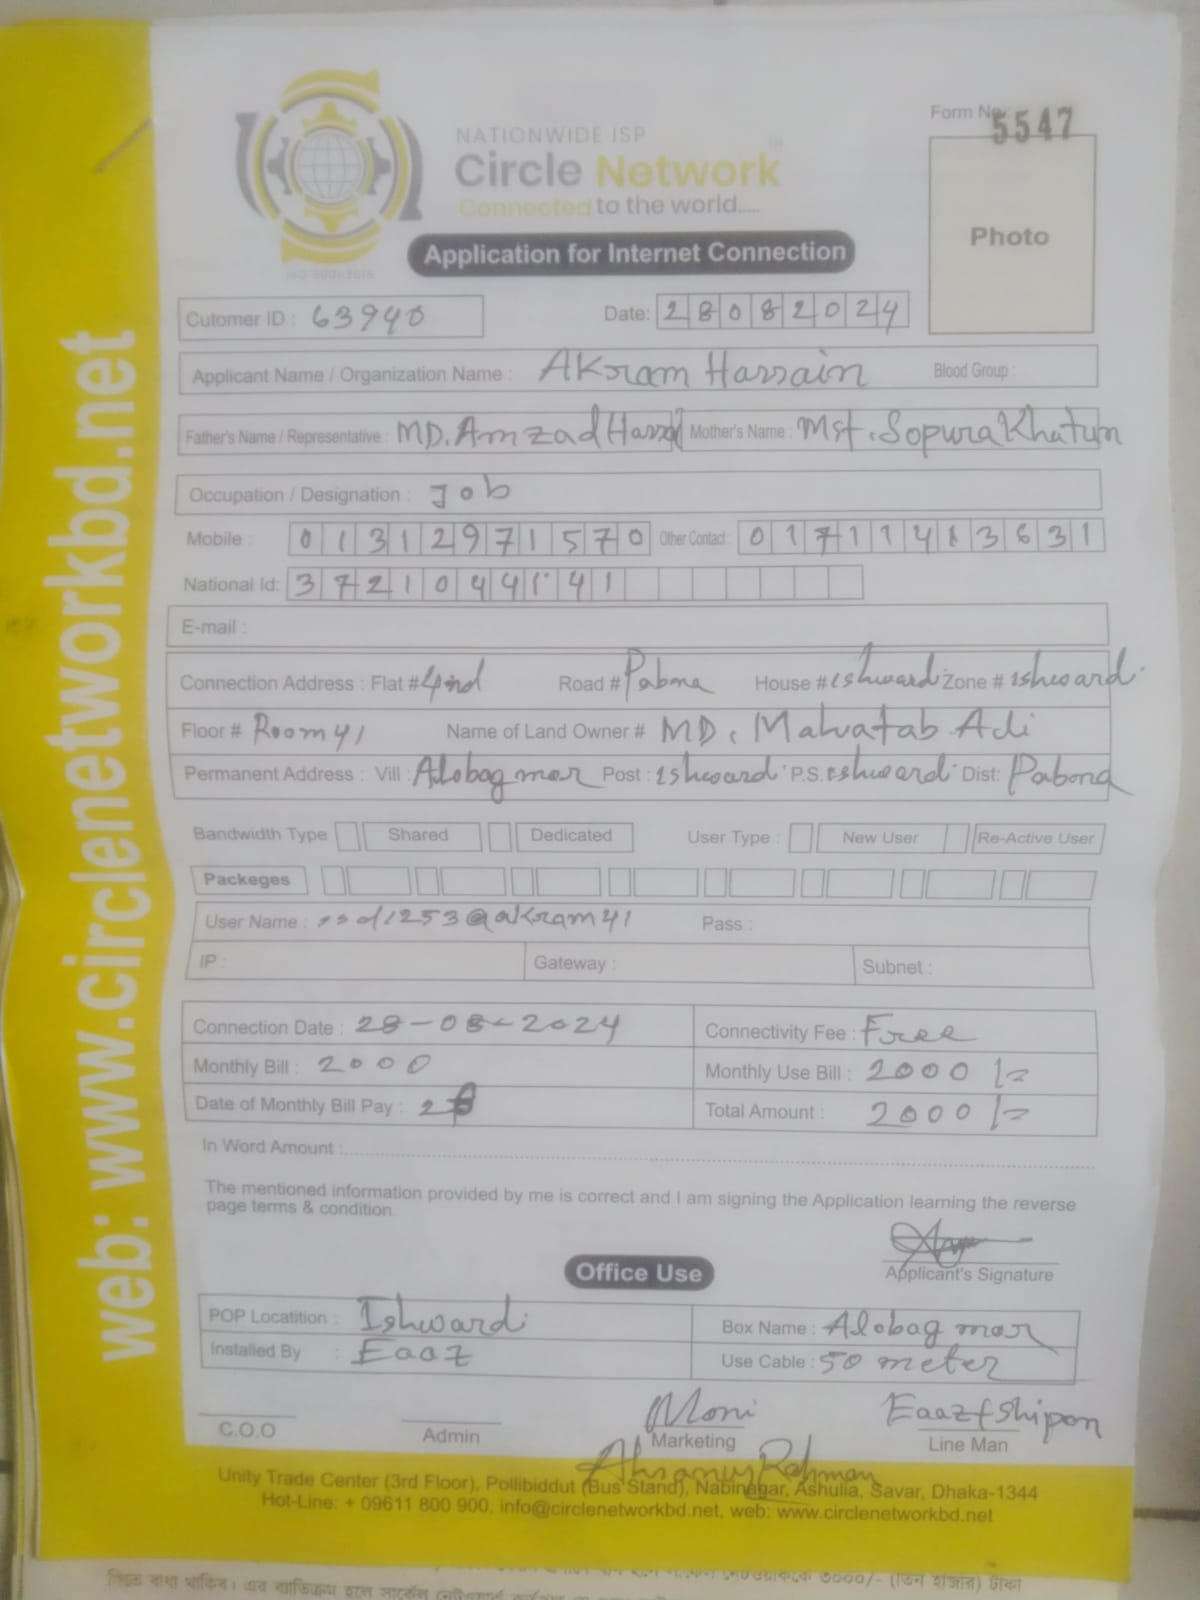 web: www.circlenetworkbd.net
Form No. 5547
NATIONWIDE ISP
Circle Network
Connected to the world.....
Photo
Application for Internet Connection
ISO 9001:2015
Cutomer ID : 63940 Date: 28082024
Applicant Name / Organization Name : AKram Hassain Blood Group :
Father's Name / Representative : MD. Amzad Mother's Name : Mst. Sopura Khatun
Occupation / Designation : Job
Mobile : 01312971570 Other Contact : 01711413631
National Id: 3721044141
E-mail :
Connection Address : Flat # 4nd Road # Pabna House # ishwardi Zone # ishwardi
Floor # Room 41 Name of Land Owner # MD. Mahatab Ali
Permanent Address : Vill : Alobag mor Post : ishwardi P.S. ishwardi Dist: Pabona
Bandwidth Type Shared Dedicated User Type : New User Re-Active User
Packeges
User Name : ssd1253@akram41 Pass :
IP : Gateway : Subnet :
Connection Date : 28-08-2024 Connectivity Fee : Free
Monthly Bill : 2000 Monthly Use Bill : 2000/=
Date of Monthly Bill Pay : Total Amount : 2000/=
In Word Amount :
The mentioned information provided by me is correct and I am signing the Application learning the reverse
page terms & condition.
Applicant's Signature
Office Use
POP Locatition : Ishwardi Box Name : Alobag mor
Installed By : Eaaz Use Cable : 50 meter
Moni Eaaz+Shipon
C.O.O Admin Marketing Line Man
Rahman
Unity Trade Center (3rd Floor), Pollibiddut (Bus Stand), Nabinagar, Ashulia, Savar, Dhaka-1344
Hot-Line: + 09611 800 900, info@circlenetworkbd.net, web: www.circlenetworkbd.net